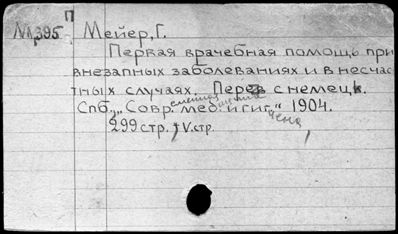 П
М395 Мейер, Г.
Первая врачебная помощь при
внезапных заболеваниях и в несчас
тных случаях. Перев с немецк.
Спб., „Совр. мед. и гиг.“ 1904.
299 стр. + V. стр.